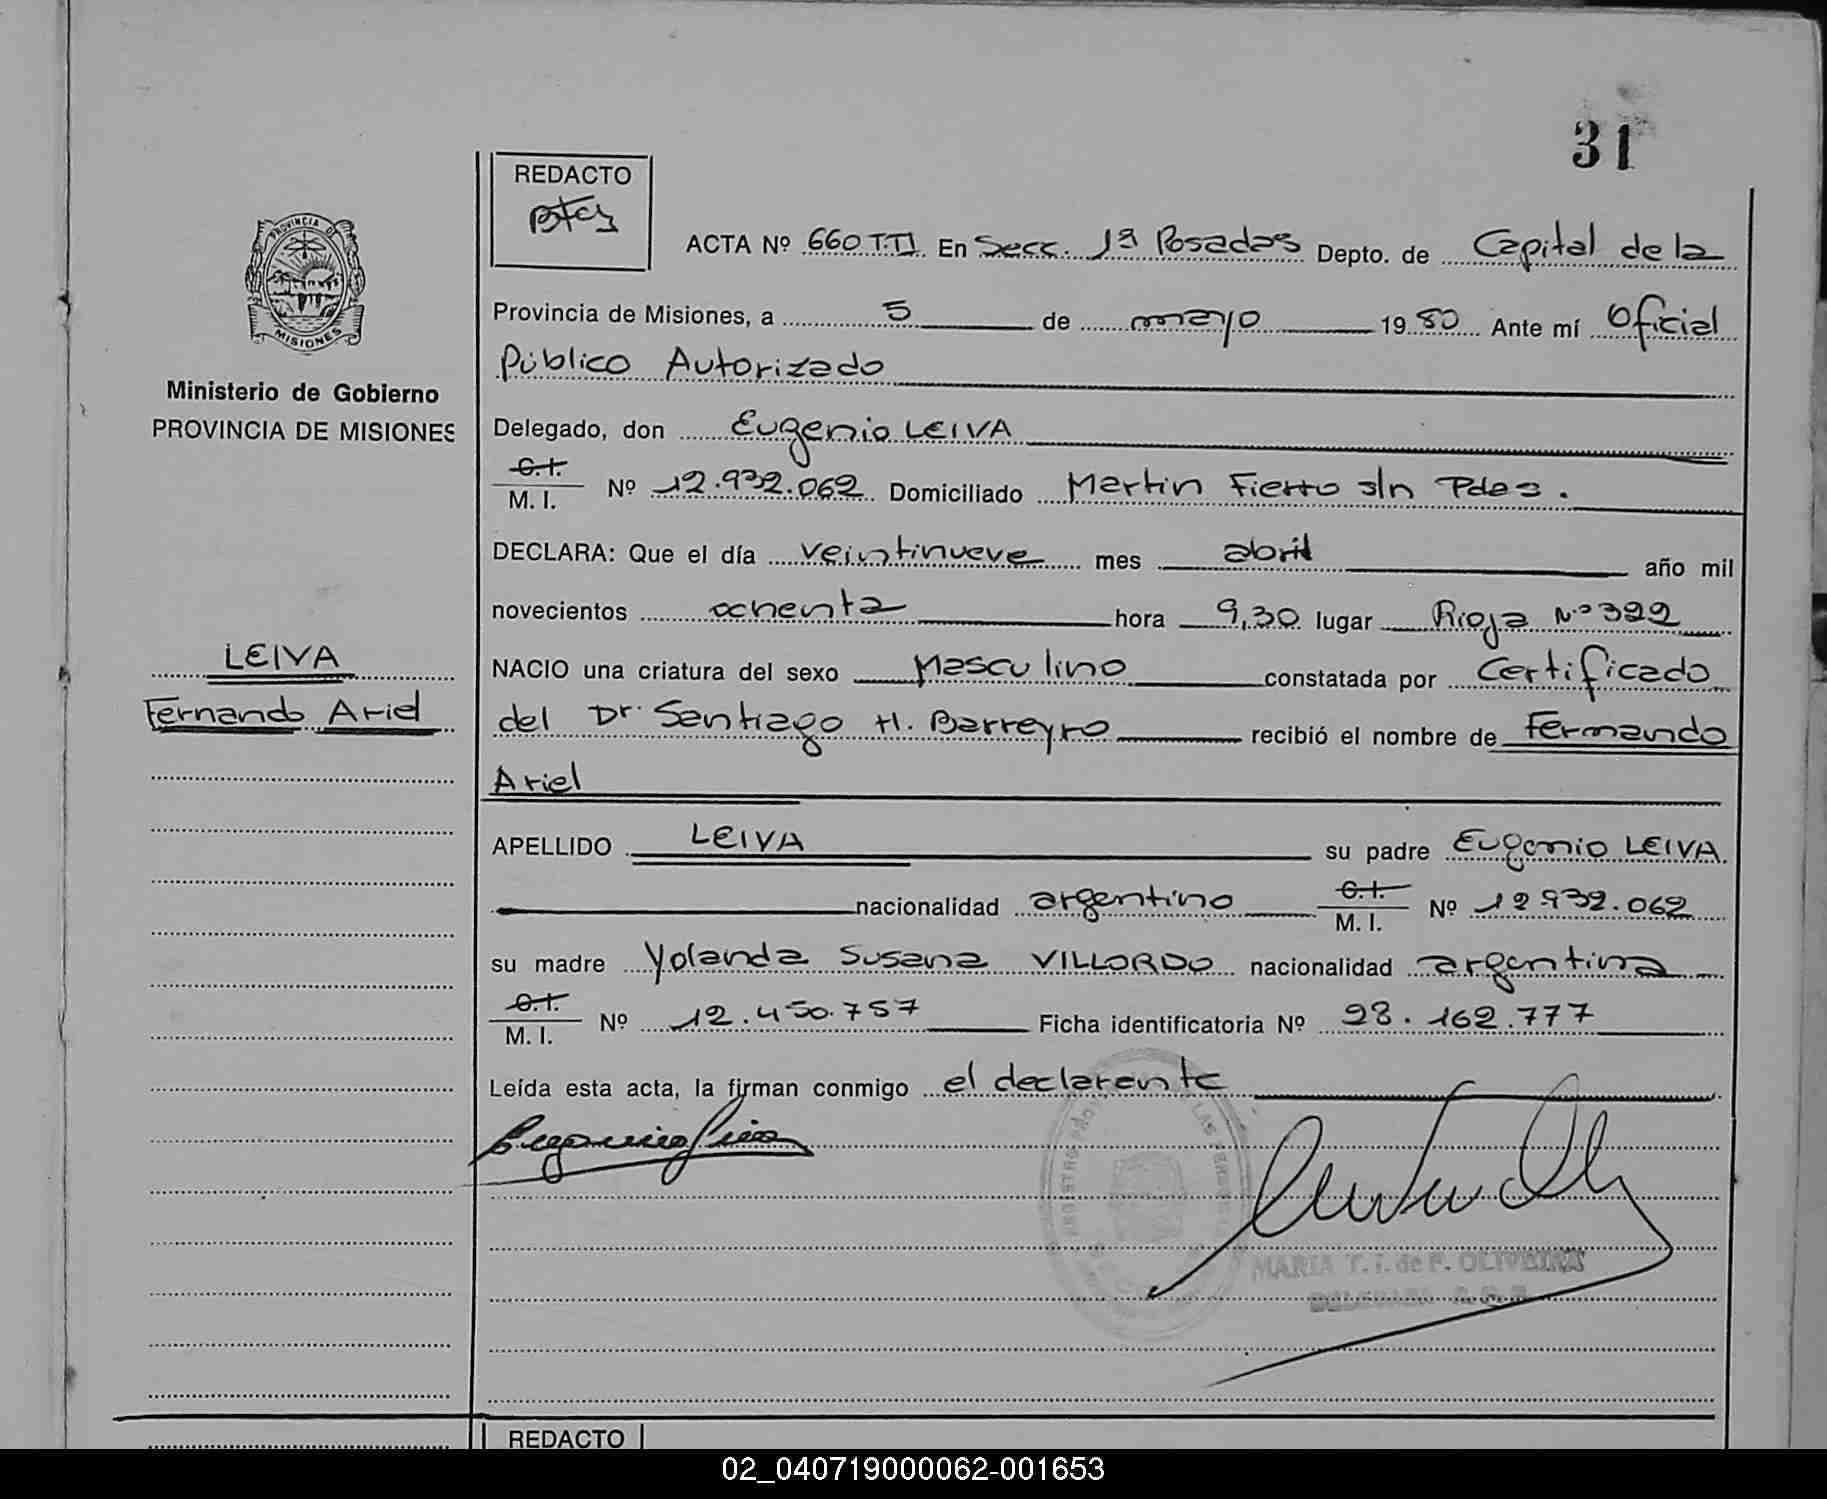 31
REDACTO
ACTA Nº 660 T.II. En Secc. 1ª Posadas Depto. de Capital de la
Provincia de Misiones, a 5 de mayo 19 80 Ante mí Oficial
Público Autorizado
PROVINCIA DE
MISIONES
Ministerio de Gobierno
PROVINCIA DE MISIONES
Delegado, don Eugenio LEIVA
C.I.
M. I. Nº 12.932.062 Domiciliado Martin Fierro s/n Pdas.
DECLARA: Que el día veintinueve mes abril año mil
novecientos ochenta hora 9,30 lugar Rioja Nº 322
LEIVA
Fernando Ariel
NACIO una criatura del sexo Masculino constatada por Certificado
del Dr. Santiago H. Barreyro recibió el nombre de Fernando
Ariel
APELLIDO LEIVA su padre Eugenio LEIVA
nacionalidad argentino C.I.
M. I. Nº 12.932.062
su madre Yolanda Susana VILLORDO nacionalidad argentina
C.I.
M. I. Nº 12.450.757 Ficha identificatoria Nº 28.162.777
Leída esta acta, la firman conmigo el declarante
MARIA T. I. de F. OLIVEIRA
DELEGADA
REDACTO
02_040719000062-001653